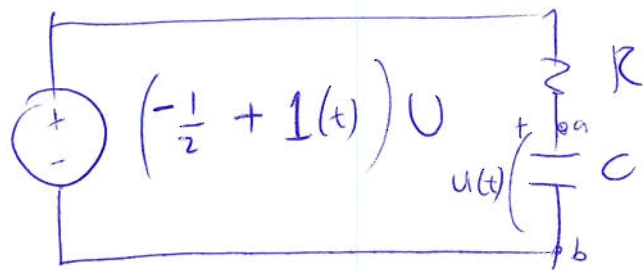 R
+
-
(-1/2 + 1(t)) U
+
a
u(t)
C
b